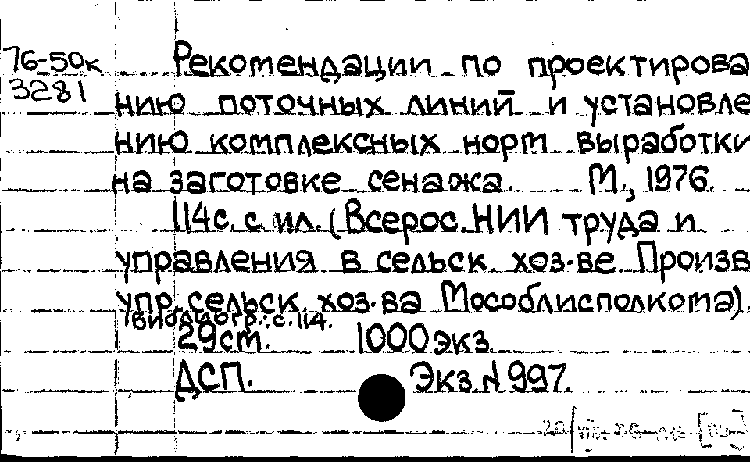 76-50к Рекомендации по проектирова
3281 нию поточных линий и установле
нию комплексных норм выработки
на заготовке сенажа. М., 1976.
114с. с ил. (Всерос. НИИ труда и
управления в сельск. хоз-ве. Произв
упр. сельск. хоз-ва Мособлисполкома).
Библиогр.: с. 114.
29см. 1000 экз.
ДСП. Экз. № 997.